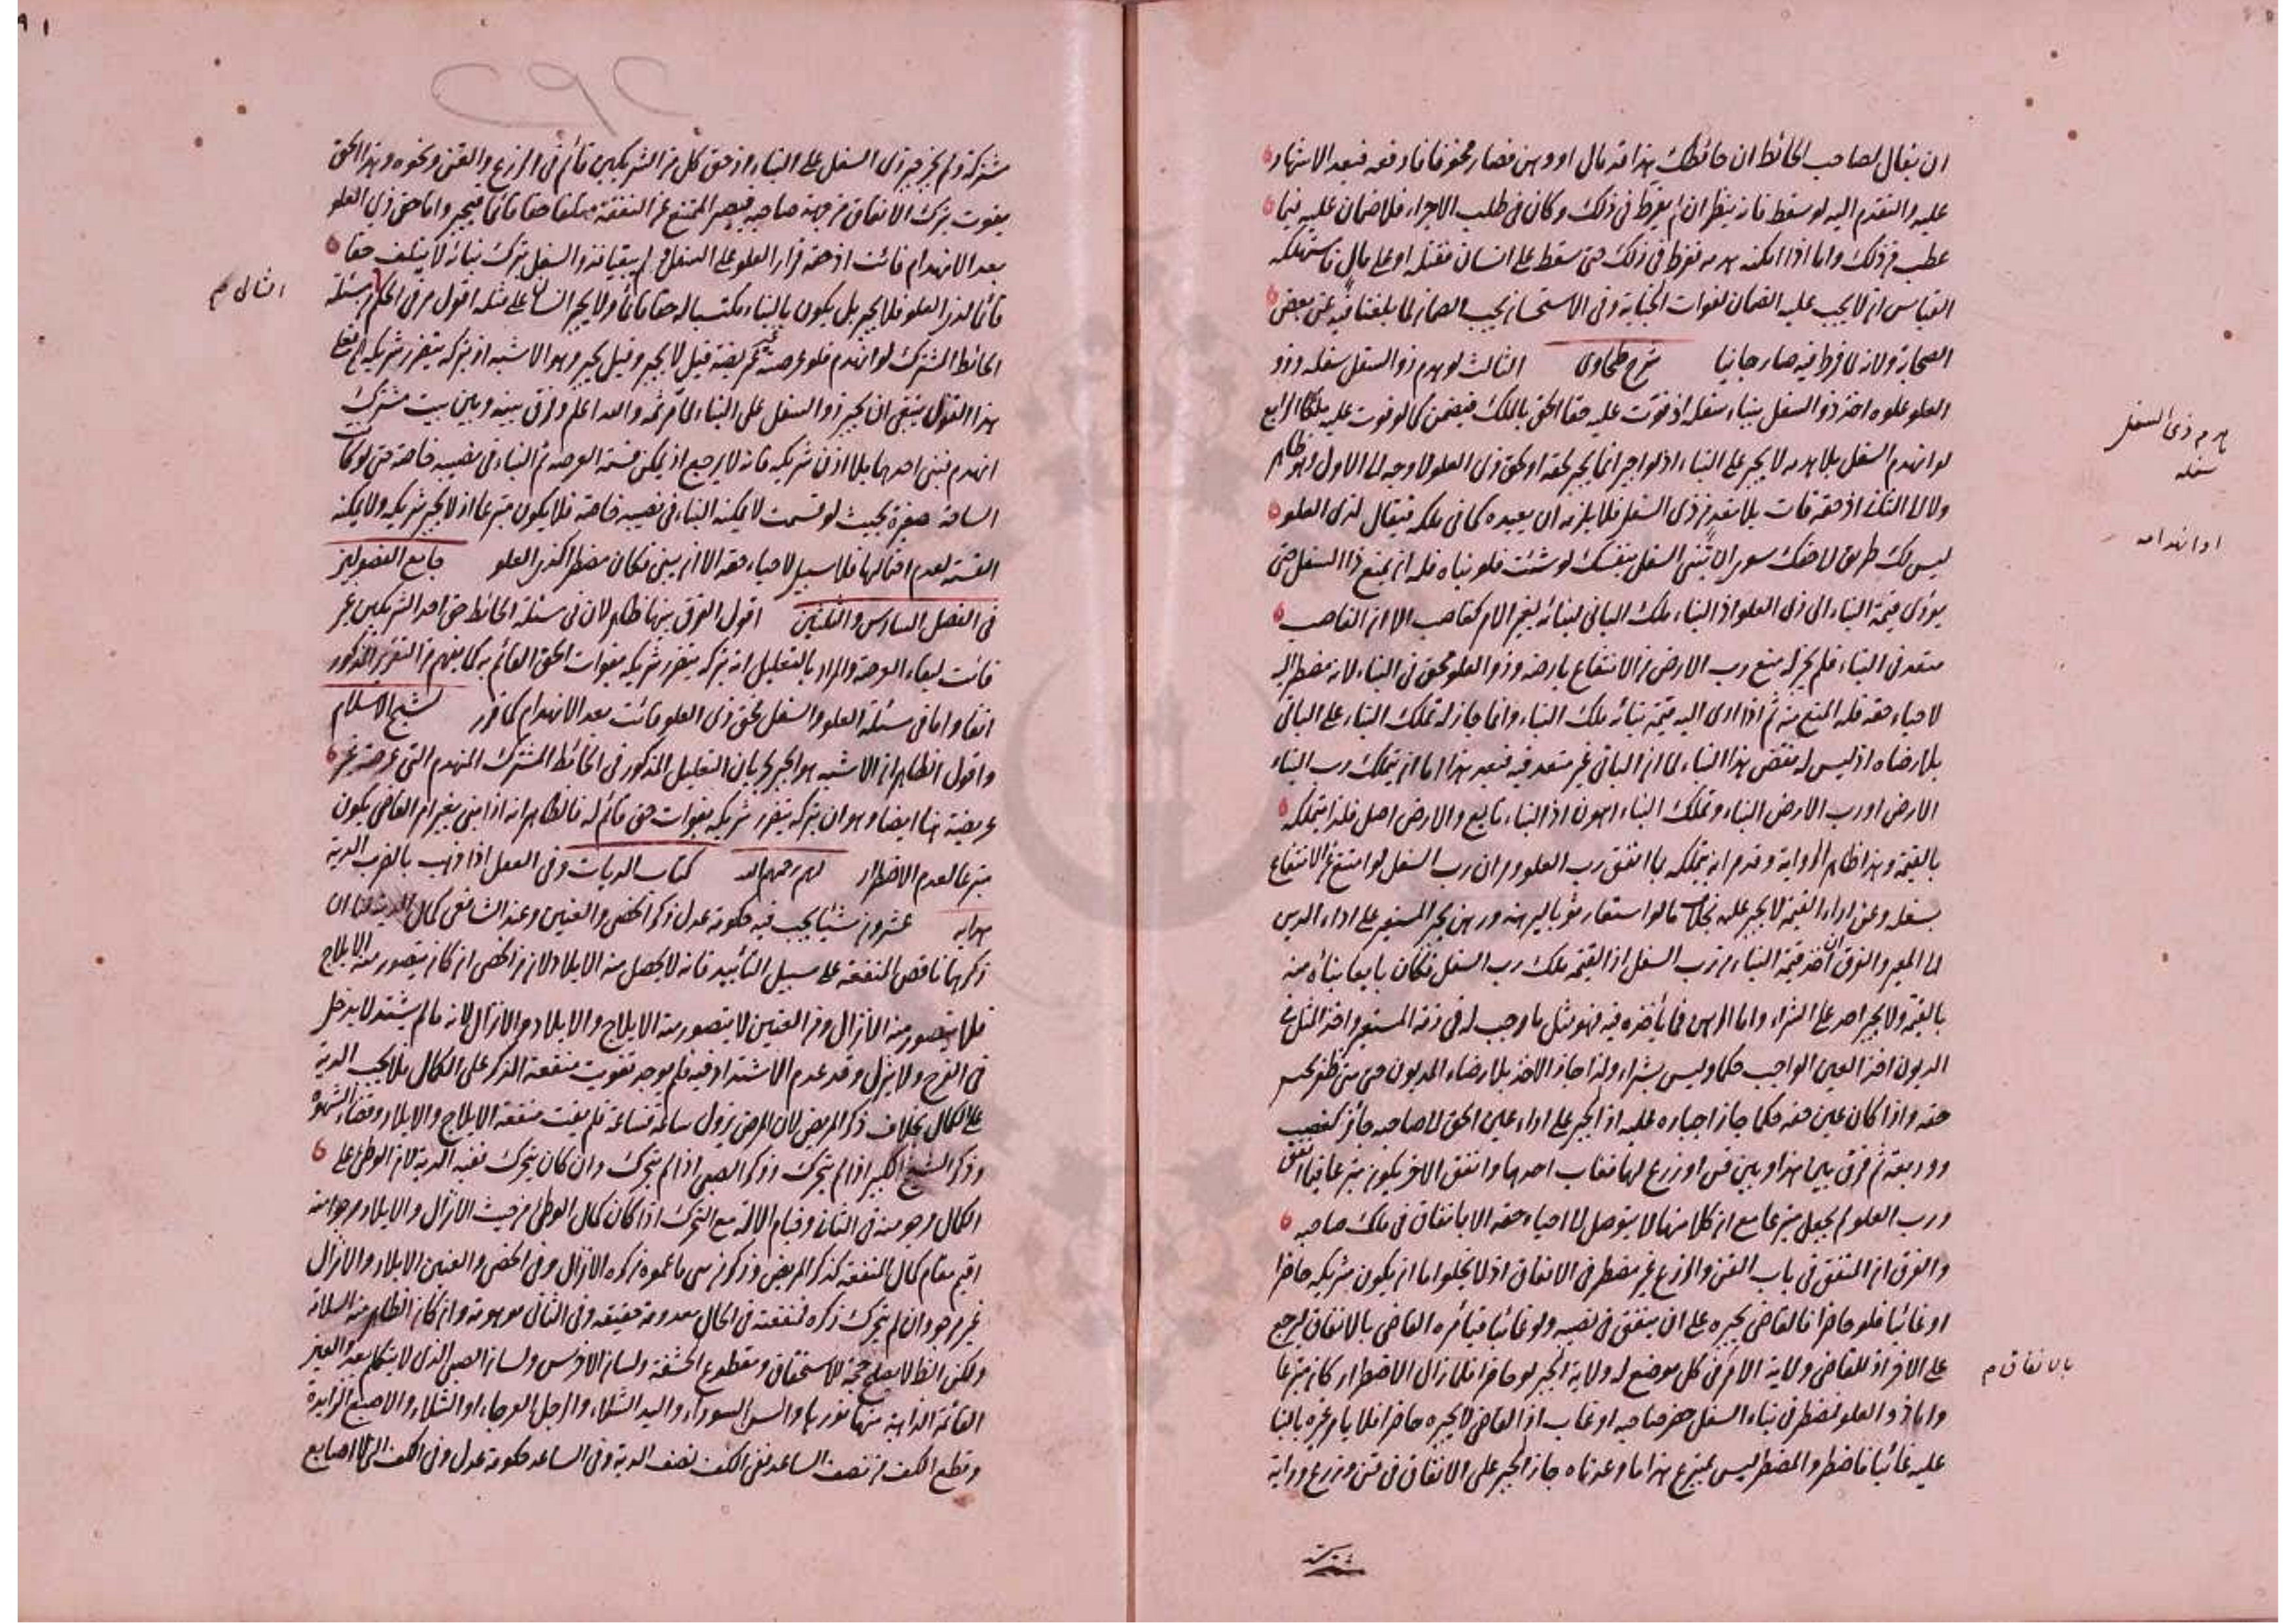 ان يقال لصاحب الحائط ان حائطك هذا قد مال او وهن فصار مخوفا فارفعه فبعد الاشهاد
عليه والتقدم اليه لو سقط فانه ينظر ان لم يفرط في ذلك وكان في طلب الاجراء فلا ضمان عليه فيما
عطب من ذلك واما اذا امكنه هدمه ففرط في ذلك حتى سقط على انسان فقتله او على مال فاستهلكه
القياس انه لا يجب عليه الضمان لفوات الجناية وفي الاستحسان يجب الضمان لما بلغنا فيه عن بعض
الصحابة ولانه لما فرط فيه صار جانيا شرح طحاوى الثالث لو هدم ذو السفل سفله وذو
العلو علوه اخذ ذو السفل ببناء سفله اذ فوّت عليه حقا الحق بالملك فيضمن كما لو فوت عليه ملكا الرابع
لو انهدم السفل بلا هدمه لا يجبر على البناء اذ لو اجبر انما يجبر لحقه او لحق ذى العلو لا وجه الى الاول وهو ظاهر
ولا الى الثاني اذ حقه فات بلا تعد من ذى السفل فلا يلزمه ان يعيده كما في ملكه فيقال لذى العلو
ليس لك طريق لاحقك سوى ان تبنى السفل بنفسك لو شئت فلو بناه فله ان يمنع ذا السفل حتى
يؤدى قيمة البناء الى ذى العلو اذ البناء ملك البانى لبنائه بغير الامر كغاصب الا ان الغاصب
متعد في البناء فلم يجز له منع رب الارض من الانتفاع بارضه وذو العلو محق في البناء لانه مضطر اليه
لاحياء حقه فله المنع منه ثم اذا ادى اليه قيمة بنائه ملك البناء وانما جاز له تملك البناء على البانى
بلا رضاه اذ ليس له نقض هذا البناء لما ان البانى غير متعد فيه فبعد هذا اما ان يتملك رب البناء
الارض او رب الارض البناء وتملك البناء اهون اذ البناء تابع والارض اصل فلذا يتملكه
بالقيمة وهذا ظاهر الرواية وقد مر انه يتملكه بما انفق رب العلو ومر ان رب السفل لو امتنع عن الانتفاع
بسفله وعن اداء القيمة لا يجبر عليه بخلاف ما لو استعار ثوبا ليرهنه ورهن يجبر المستعير على اداء الدين
الى المعير والفرق ان اخذ قيمة البناء من رب السفل اذ القيمة ملك رب السفل فكان بايعا بناه منه
بالقيمة ولا يجبر احد على الشراء واما الرهن فما يأخذه فيه فهو مثل ما وجب له في ذمة المستعير واخذ المثل في
الديون اخذ العين الواجب حكما وليس بشراء ولذا جاز الاخذ بلا رضاء المديون حتى متى ظفر بجنس
حقه واذا كان عين حقه حكما جاز اجباره عليه اذ الجبر على اداء عين الحق الى صاحبه جائز كغصب
ووديعة ثم فرق بين هذا وبين قن او زرع لهما فغاب احدهما وانفق الاخر يكون متبرعا فيما انفق
ورب العلو لم يجعل متبرعا مع ان كلا منهما لا يتوصل الى احياء حقه الا بانفاق في ملك صاحبه
والفرق ان المنفق في باب القن والزرع غير مضطر في الانفاق اذ لا يخلوا اما ان يكون شريكه حاضرا
او غائبا فلو حاضرا فالقاضى يجبره على ان ينفق في نصيبه ولو غائبا فيأمره القاضى بالانفاق ليرجع
على الاخر اذ للقاضى ولاية الامر في كل موضع له ولاية الجبر لو حاضرا فلما زال الاضطرار كان متبرعا
واما ذو العلو فمضطر في بناء السفل حضر صاحبه او غاب اذ القاضى لا يجبره حاضرا فلا يأمر غيره بالبناء
عليه غائبا فاضطر والمضطر ليس بمتبرع هذا ما وعدناه جاز الجبر على الانفاق في قن وزرع ودابة
مشتركة
هدم ذى السفل
سفله
او انهدامه
بالانفاق م
مشتركة ولم يجز جبر ذى السفل على البناء اذ حق كل من الشريكين قائم في الزرع والقن ونحوه وهذا الحق
يفوت بترك الانفاق من جهة صاحبه فيصير الممتنع عن النفقة متلفا حقا قائما فيجبر واما حق ذى العلو
بعد الانهدام فائت اذ حقه قرار العلو على السفل ولم يبقيا فذو السفل بترك بنائه لا يتلف حقا
قائما لذى العلو فلا يجبر بل يكون بالبناء مكتسبا له حقا قائما ولا يجبر انسان على مثله اقول مر في الحكم مسئلة
الحائط المشترك لو انهدم فلو عرصته غير عريضة قيل لا يجبر وقيل يجبر وهو الاشبه اذ بتركه يتضرر شريكه فعلى
هذا القول ينبغى ان يجبر ذو السفل على البناء لما مر ثمه والله اعلم وفرق بينه وبين بيت مشترك
انهدم فبنى احدهما بلا اذن شريكه فانه لا يرجع اذ يمكن قسمة العرصة ثم البناء في نصيبه خاصة حتى لو كان
الساحة صغيرة بحيث لو قسمت لا يمكنه البناء في نصيبه خاصة فلا يكون متبرعا اذ لا يجبر شريكه ولا يمكنه
القسمة لعدم احتمالها فلا سبيل لاحياء حقه الا ان يبنى فكان مضطرا كذى العلو جامع الفصولين
في الفصل السادس والثلثين اقول الفرق بينهما ظاهر لان في مسئلة الحائط حق احد الشريكين غير
فائت لبقاء العرصة والمراد بالتعليل انه بتركه يتضرر شريكه بفوات الحق القائم به كما يفهم من التقرير المذكور
انفا واما في مسئلة العلو والسفل فحق ذى العلو فائت بعد الانهدام كما قرر لشيخ الاسلام
واقول الظاهر ان الاشبه هو الجبر لجريان التعليل المذكور في الحائط المشترك المنهدم التى عرصته غير
عريضة هنا ايضا وهو ان بتركه يتضرر شريكه بفوات حق قائم له فالظاهر انه اذا بنى بغير امر القاضى يكون
متبرعا لعدم الاضطرار لهم رحمهم الله كتاب الديات وفي العقل اذا ذهب بالضرب الدية
هدايه عشرون شيئا يجب فيه حكومة عدل ذكر الخصى والعنين وعند الشافعى كمال الدية لنا ان
ذكرهما ناقص المنفعة على سبيل التأبيد فانه لا يحصل منه الايلاد لان من الخصى ان كان يتصور منه الايلاج
فلا يتصور منه الانزال ومن العنين لا يتصور منه الايلاج والايلاد والانزال لانه ما لم يشتد لا يدخل
في الفرج ولا ينزل وقد عدم الاشتداد فيه فلم يوجد تفويت منفعة الذكر على الكمال فلا يجب الدية
على الكمال بخلاف ذكر المريض لان المرض يزول ساعة فساعة فلم يفت منفعة الايلاج والايلاد وقضاء الشهوة
وذكر الشيخ الكبير اذا لم يتحرك وذكر الصبى اذا لم يتحرك وان كان يتحرك ففيه الدية لان الوطئ على
الكمال مرجو منه في الثانى وقيام الالة مع التحرك اذا كان كمال الوطئ من حيث الانزال والايلاد مرجوا منه
اقيم مقام كمال المنفعة كذكر المريض وفي الخصى والعنين الايلاد والانزال
غير مرجو وان لم يتحرك ذكره فمنفعته في الحال معدومة حقيقة وفي الثانى موهومة وان كان الظاهر منه السلامة
ولكن الظاهر لا يصلح حجة للاستحقاق ومقطوع الحشفة ولسان الاخرس ولسان الصبى الذى لا يتكلم بعد والعين
القائمة الذاهبة منها نورها والسن السوداء واليد الشلاء والرجل العرجاء او الشلاء والاصبع الزايدة
وقطع الكف من نصف الساعد ففى الكف نصف الدية وفي الساعد حكومة عدل وفي الكف التى لا اصابع
الثانى م